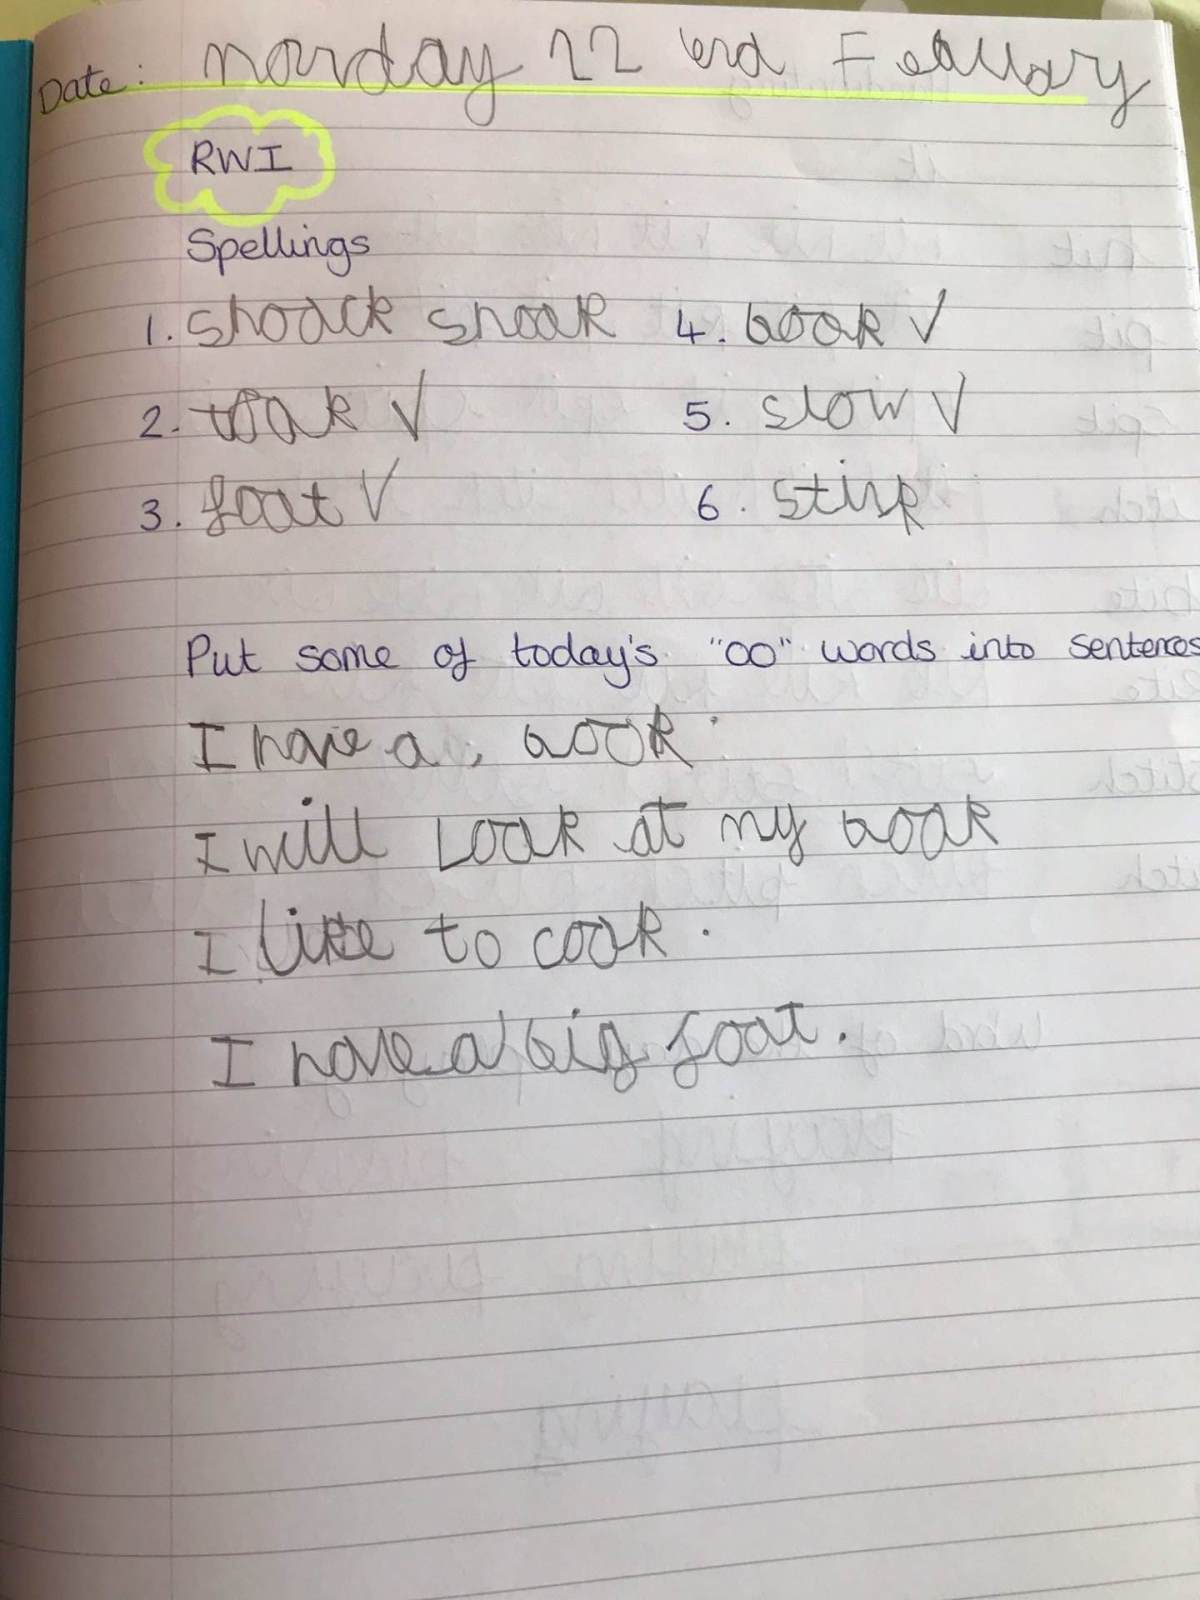 Date: Monday 22 end Febuary
RWI
Spellings
1. shoock shook 4. book ✓
2. took ✓ 5. slow ✓
3. foot ✓ 6.
Put some of today's "oo" words into sentences
I have a, book.
I will Look at my book
I like to cook.
I have a big foot.